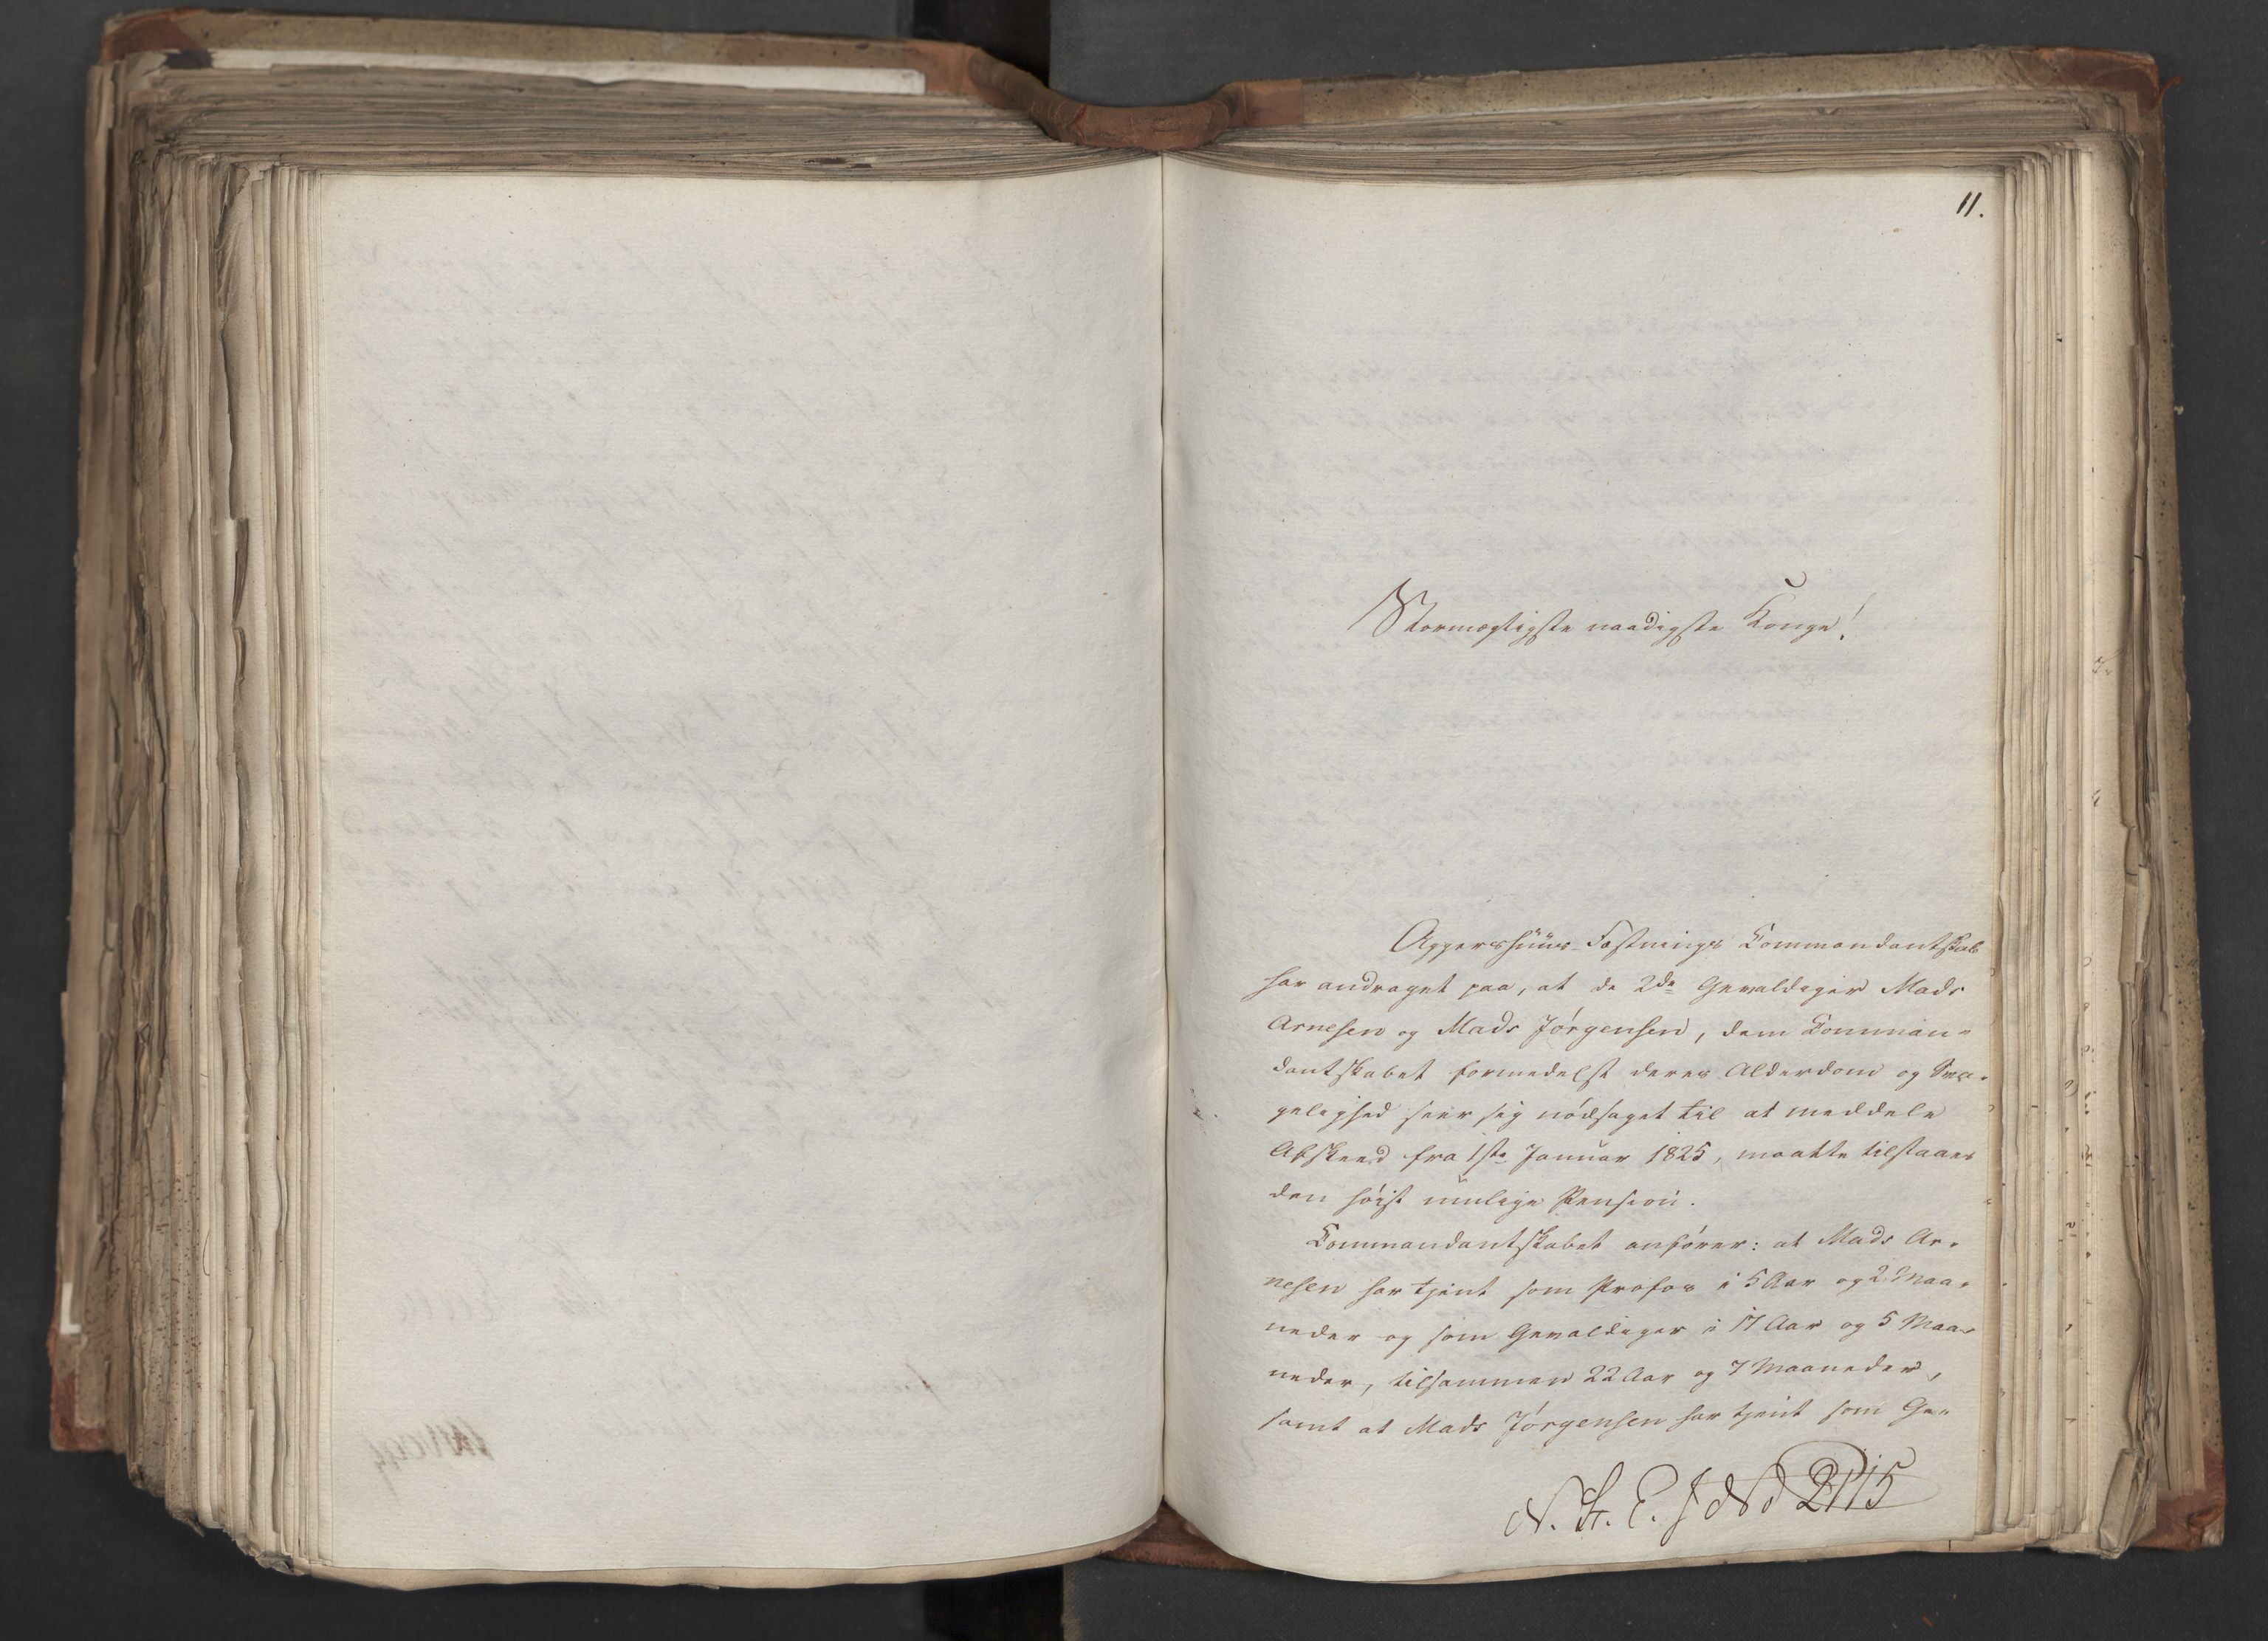 11.
Stormægtigste naadigste Konge!
Aggershuus Fæstnings Commandantskab
har andraget paa, at de 2de Gevaldiger Mads
Arnesen og Mads Jörgensen, dem Comman-
dantskabet formedelst deres Alderdom og Svag-
gelighed seer sig nödsaget til at meddele
Afskeed fra 1ste Januar 1825, maatte tilstaaes
den höist mulige Pension.
Commandantskabet anförer: at Mads Ar-
nesen har tjent som Profos i 5 Aar og 2 Maa-
neder og som Gevaldiger i 17 Aar og 5 Maa-
neder, tilsammen 22 Aar og 7 Maaneder,
samt at Mads Jörgensen har tjent som Ge-
N. St. E.